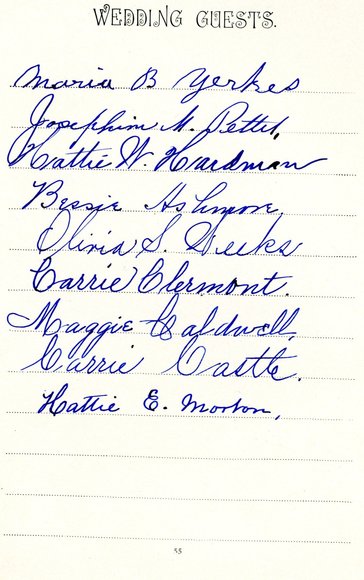 WEDDING GUESTS.
Maria B Yerkes
Josephine M. Pettit,
Hattie W. Hardman
Bessie Ashmore
Olivia S. Weeks
Carrie Clermont.
Maggie Caldwell,
Carrie Castle.
Hattie E. Morton,
55